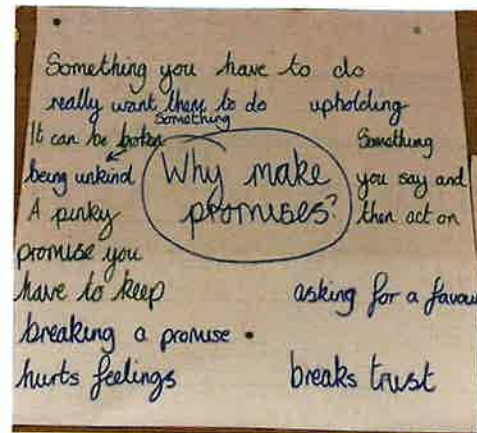 Something you have to do
really want them to do
Something
upholding
It can be broken
being unkind
Why make
promises?
Something
you say and
then act on
A pinky
promise you
have to keep
asking for a favour
breaking a promise
hurts feelings
breaks trust